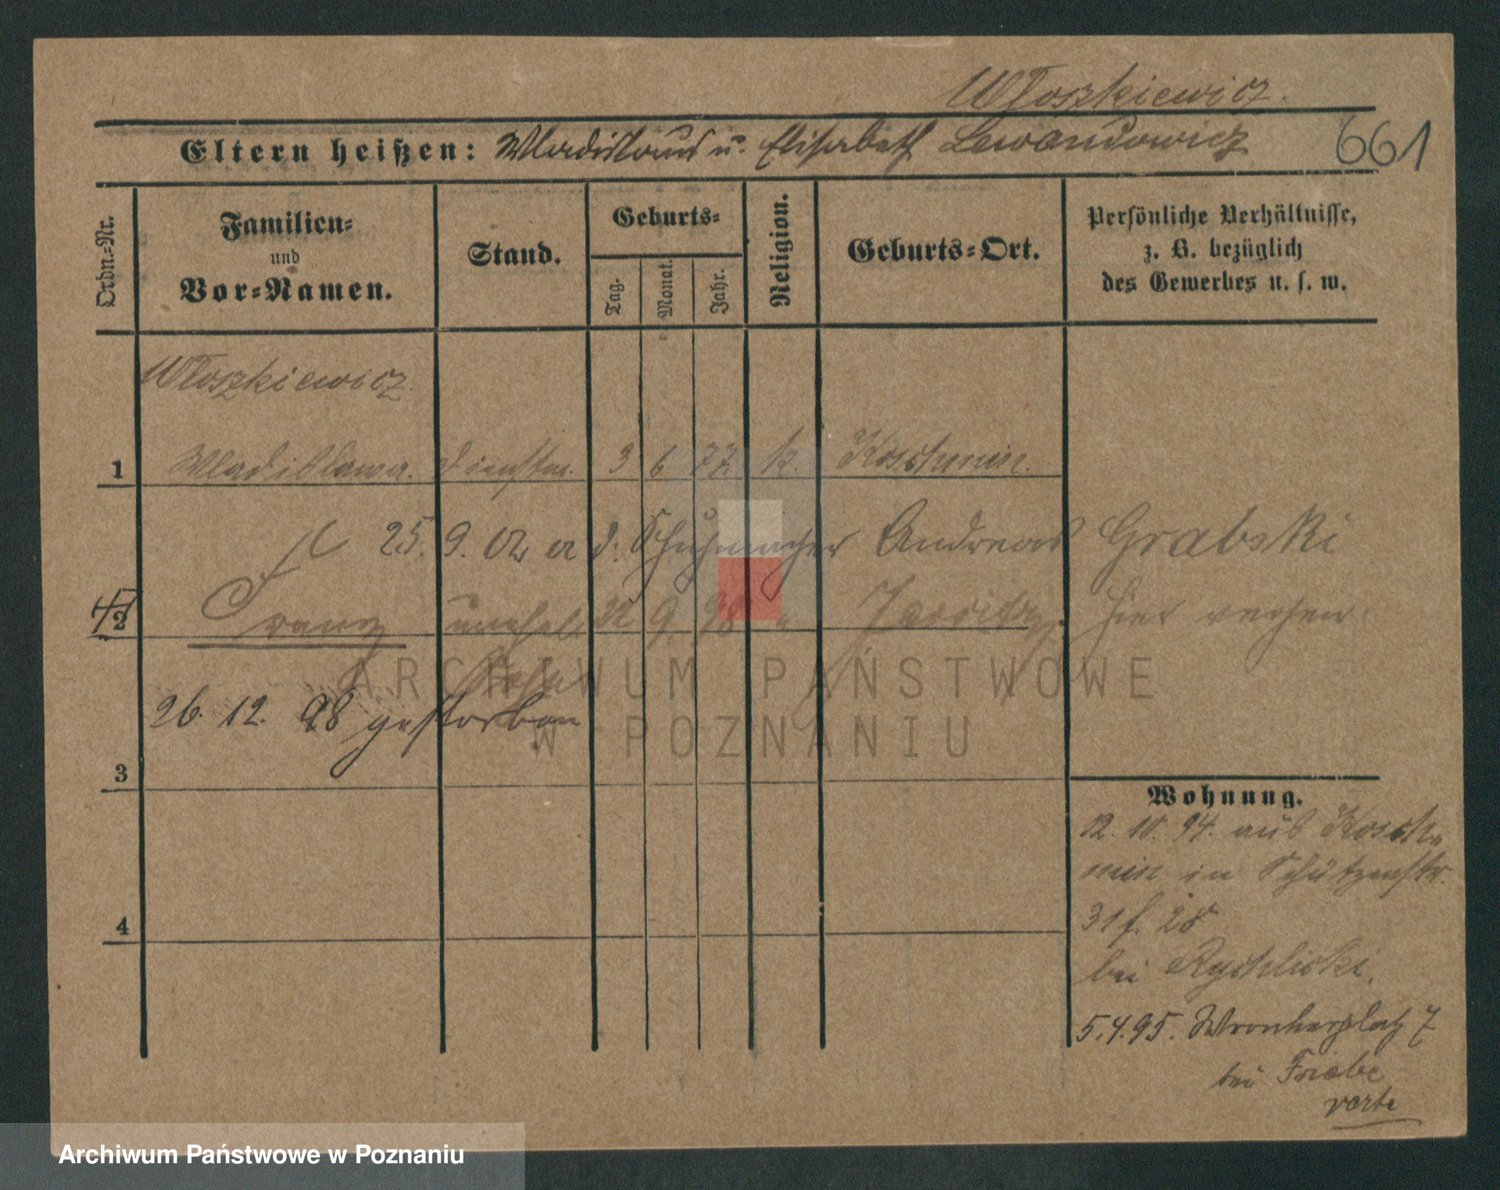 Włoszkiewicz.
Eltern heißen: Wladislaus u. Elisabeth Lewandowicz
661
Ordn.-Nr.
Familien-
und
Vor-Namen.
Stand.
Geburts-
Tag.
Monat.
Jahr.
Religion.
Geburts-Ort.
Persönliche Verhältnisse,
z. B. bezüglich
des Gewerbes u. s. w.
Włoszkiewicz.
1 Wladislawa. Dienstm. 3 6 77 k. Koschmin.
25. 9. 02 a d. Schuhmacher Andreas Grabski
2 Franz unehel. 22 9 98 " hier verheir.
Sohn
26. 12. 98 gestorben
3
4
Wohnung.
12. 10. 94. aus Kosch-
min in Schützenstr.
31 f. 28
bei Rychlicki.
5.4.95. Wronkerplatz 7
bei Friebe
verte
ARCHIWUM PAŃSTWOWE
W POZNANIU
Archiwum Państwowe w Poznaniu